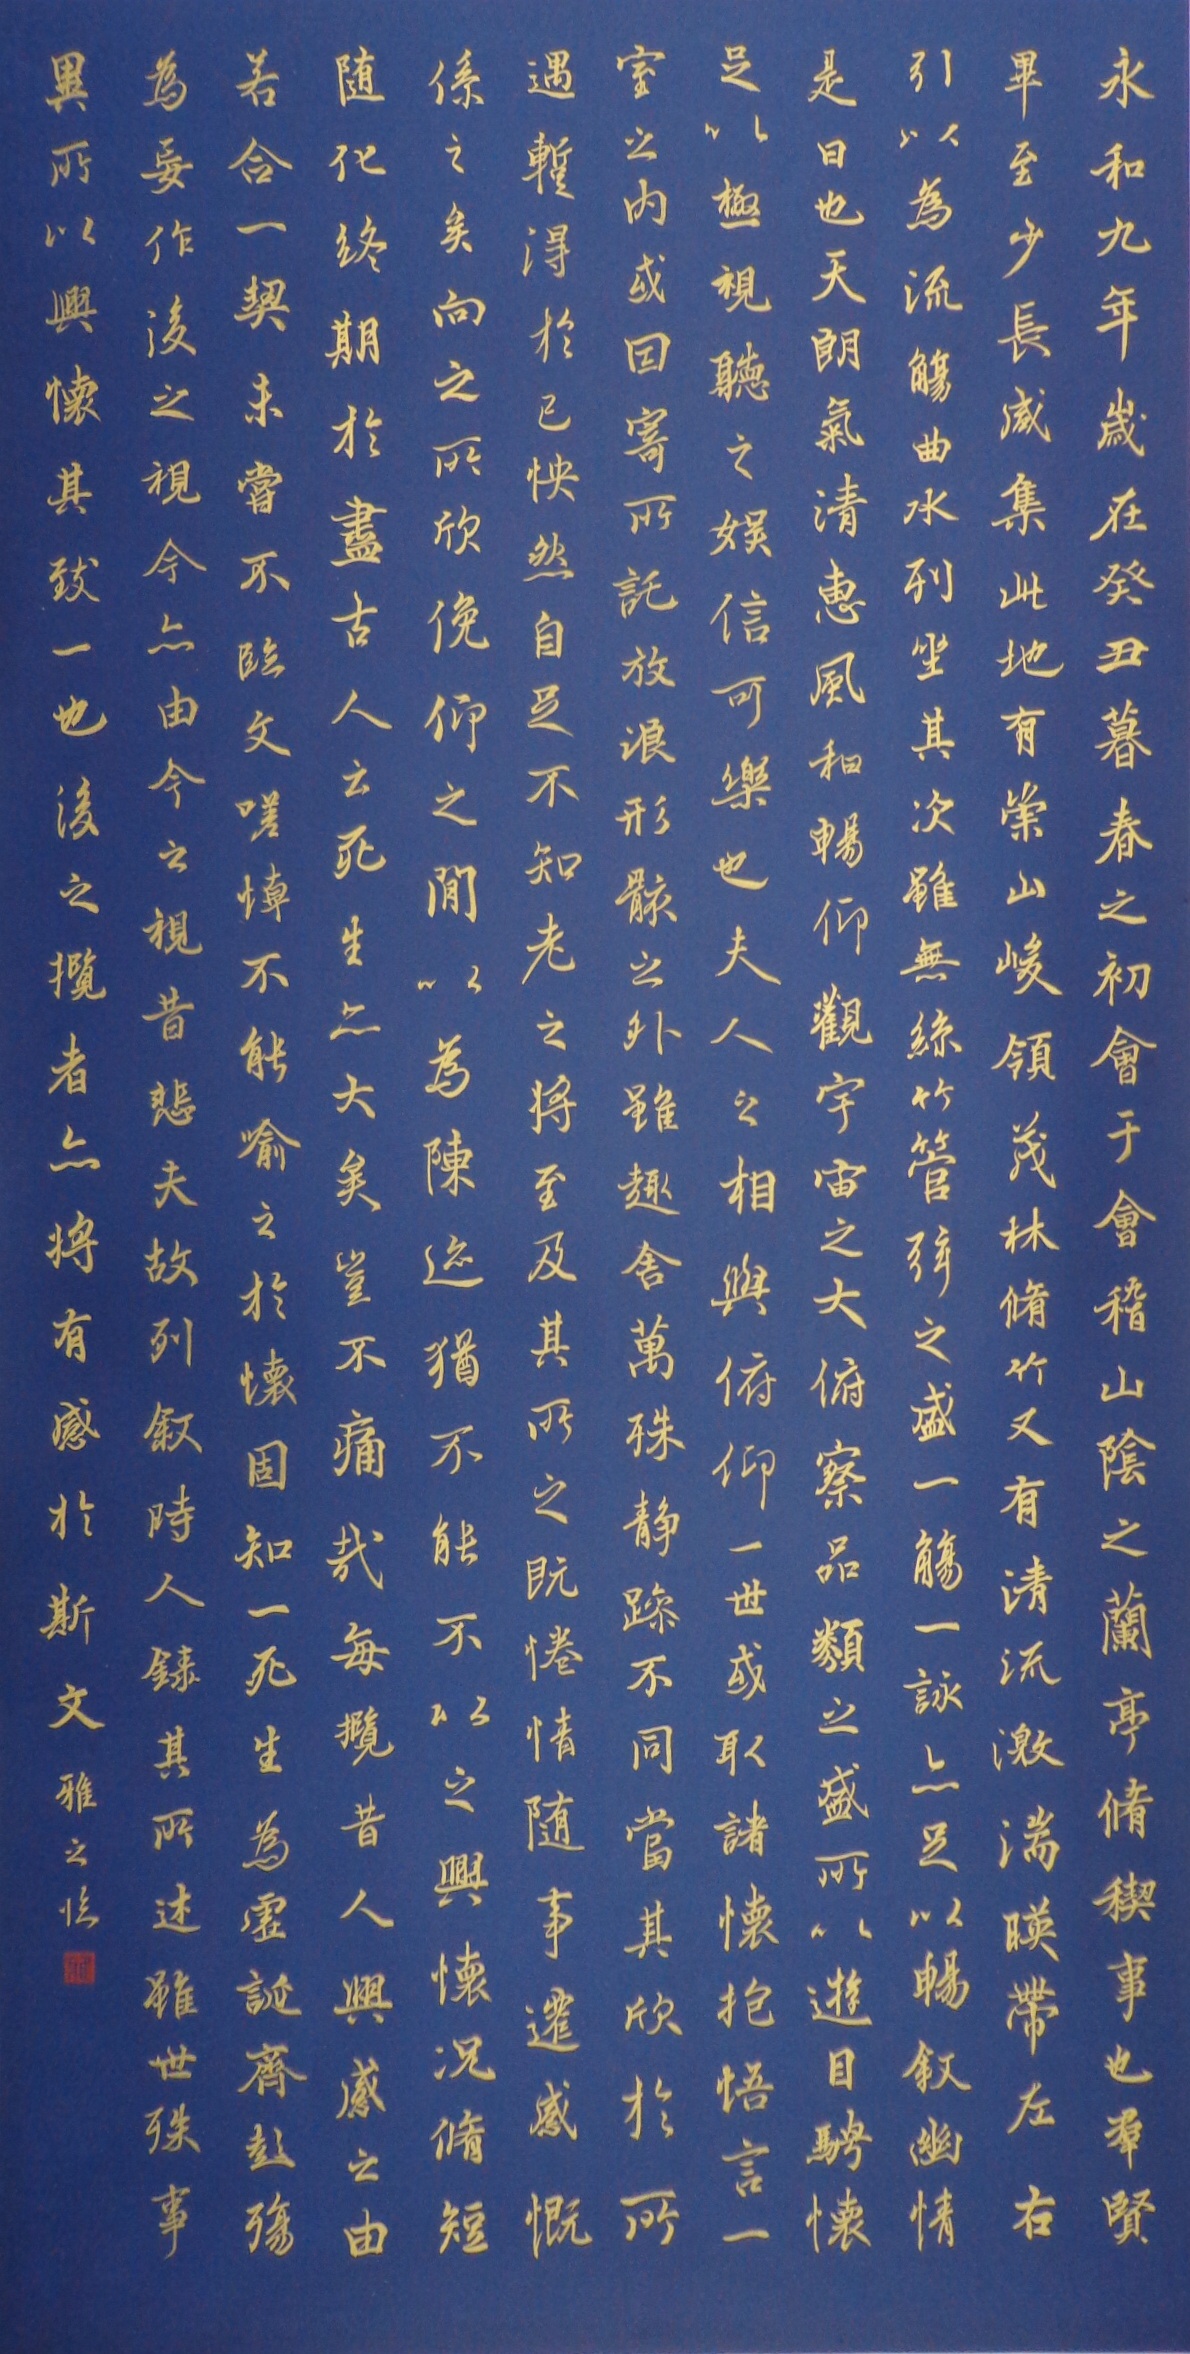 永和九年歲在癸丑暮春之初會于會稽山陰之蘭亭脩稧事也羣賢
畢至少長咸集此地有崇山峻領茂林脩竹又有清流激湍暎帶左右
引以為流觴曲水列坐其次雖無絲竹管弦之盛一觴一詠亦足以暢敘幽情
是日也天朗氣清惠風和暢仰觀宇宙之大俯察品類之盛所以遊目騁懷
足以極視聽之娛信可樂也夫人之相與俯仰一世或取諸懷抱悟言一
室之內或因寄所託放浪形骸之外雖趣舍萬殊靜躁不同當其欣於所
遇暫得於己怏然自足不知老之將至及其所之既惓情隨事遷感慨
係之矣向之所欣俛仰之閒以為陳迹猶不能不以之興懷況脩短
隨化終期於盡古人云死生亦大矣豈不痛哉每攬昔人興感之由
若合一契未嘗不臨文嗟悼不能喻之於懷固知一死生為虛誕齊彭殤
為妄作後之視今亦由今之視昔悲夫故列敘時人錄其所述雖世殊事
異所以興懷其致一也後之攬者亦將有感於斯文 雅之臨